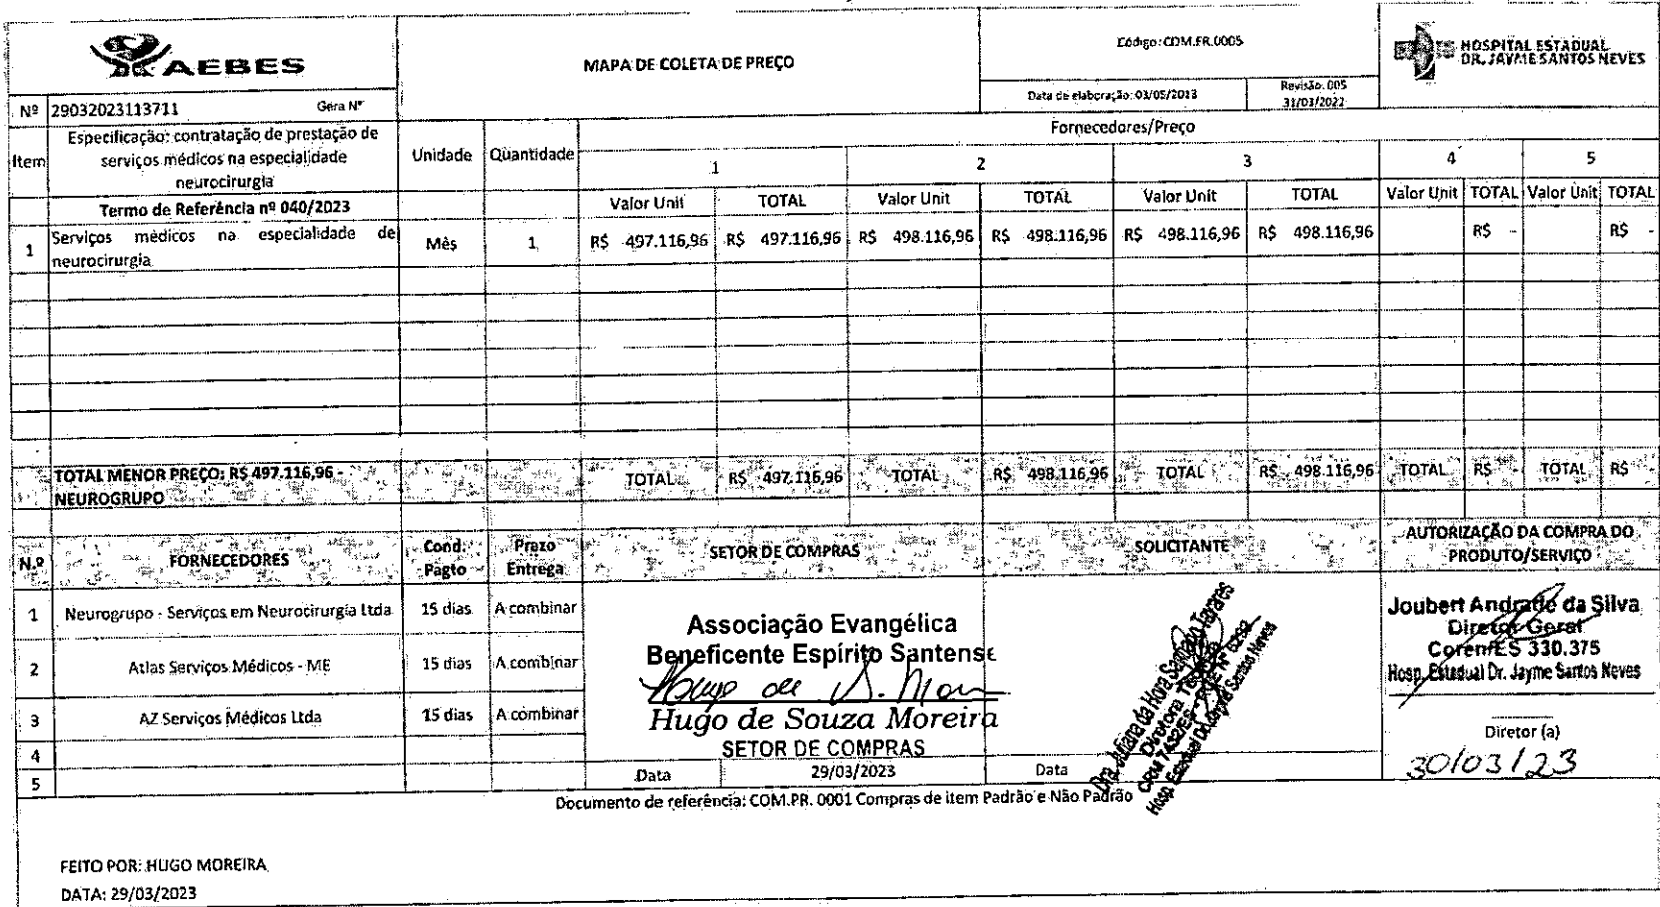 AEBES
MAPA DE COLETA DE PREÇO
Código: COM.FR.0005
HOSPITAL ESTADUAL
DR. JAYME SANTOS NEVES
Data de elaboração: 03/05/2013
Revisão: 005
31/03/2022
Nº 29032023113711 Gera Nº
Item
Especificação: contratação de prestação de
serviços médicos na especialidade
neurocirurgia
Unidade Quantidade
Fornecedores/Preço
1 2 3 4 5
Termo de Referência nº 040/2023
Valor Unit TOTAL Valor Unit TOTAL Valor Unit TOTAL Valor Unit TOTAL Valor Unit TOTAL
1 Serviços médicos na especialidade de
neurocirurgia
Mês 1 R$ 497.116,96 R$ 497.116,96 R$ 498.116,96 R$ 498.116,96 R$ 498.116,96 R$ 498.116,96 R$ - R$ -
TOTAL MENOR PREÇO: R$ 497.116,96 -
NEUROGRUPO
TOTAL R$ 497.116,96 TOTAL R$ 498.116,96 TOTAL R$ 498.116,96 TOTAL R$ - TOTAL R$ -
N.º FORNECEDORES
Cond.
Pagto
Prazo
Entrega
SETOR DE COMPRAS
SOLICITANTE
AUTORIZAÇÃO DA COMPRA DO
PRODUTO/SERVIÇO
1 Neurogrupo - Serviços em Neurocirurgia Ltda 15 dias A combinar
2 Atlas Serviços Médicos - ME 15 dias A combinar
3 AZ Serviços Médicos Ltda 15 dias A combinar
4
5
Associação Evangélica
Beneficente Espírito Santense
Hugo de Souza Moreira
SETOR DE COMPRAS
Data 29/03/2023
Dra. Juliana da Hora Santiago Tavares
Diretora Técnica
Hosp. Estadual Dr. Jayme Santos Neves
Data
Joubert Andrade da Silva
Diretor Geral
Coren/ES 330.375
Hosp. Estadual Dr. Jayme Santos Neves
Diretor (a)
30/03/23
Documento de referência: COM.PR. 0001 Compras de item Padrão e Não Padrão
FEITO POR: HUGO MOREIRA
DATA: 29/03/2023